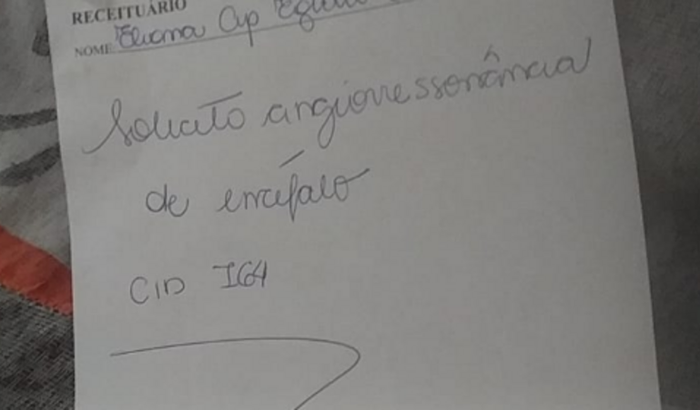 RECEITUÁRIO
NOME
Solicito angioressonância
de encéfalo
CID I64